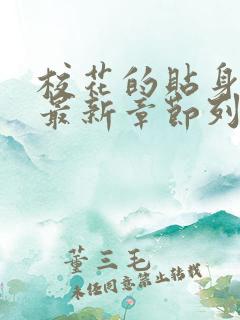 校花的貼身
最新章節列
董三毛
未经同意禁止转载